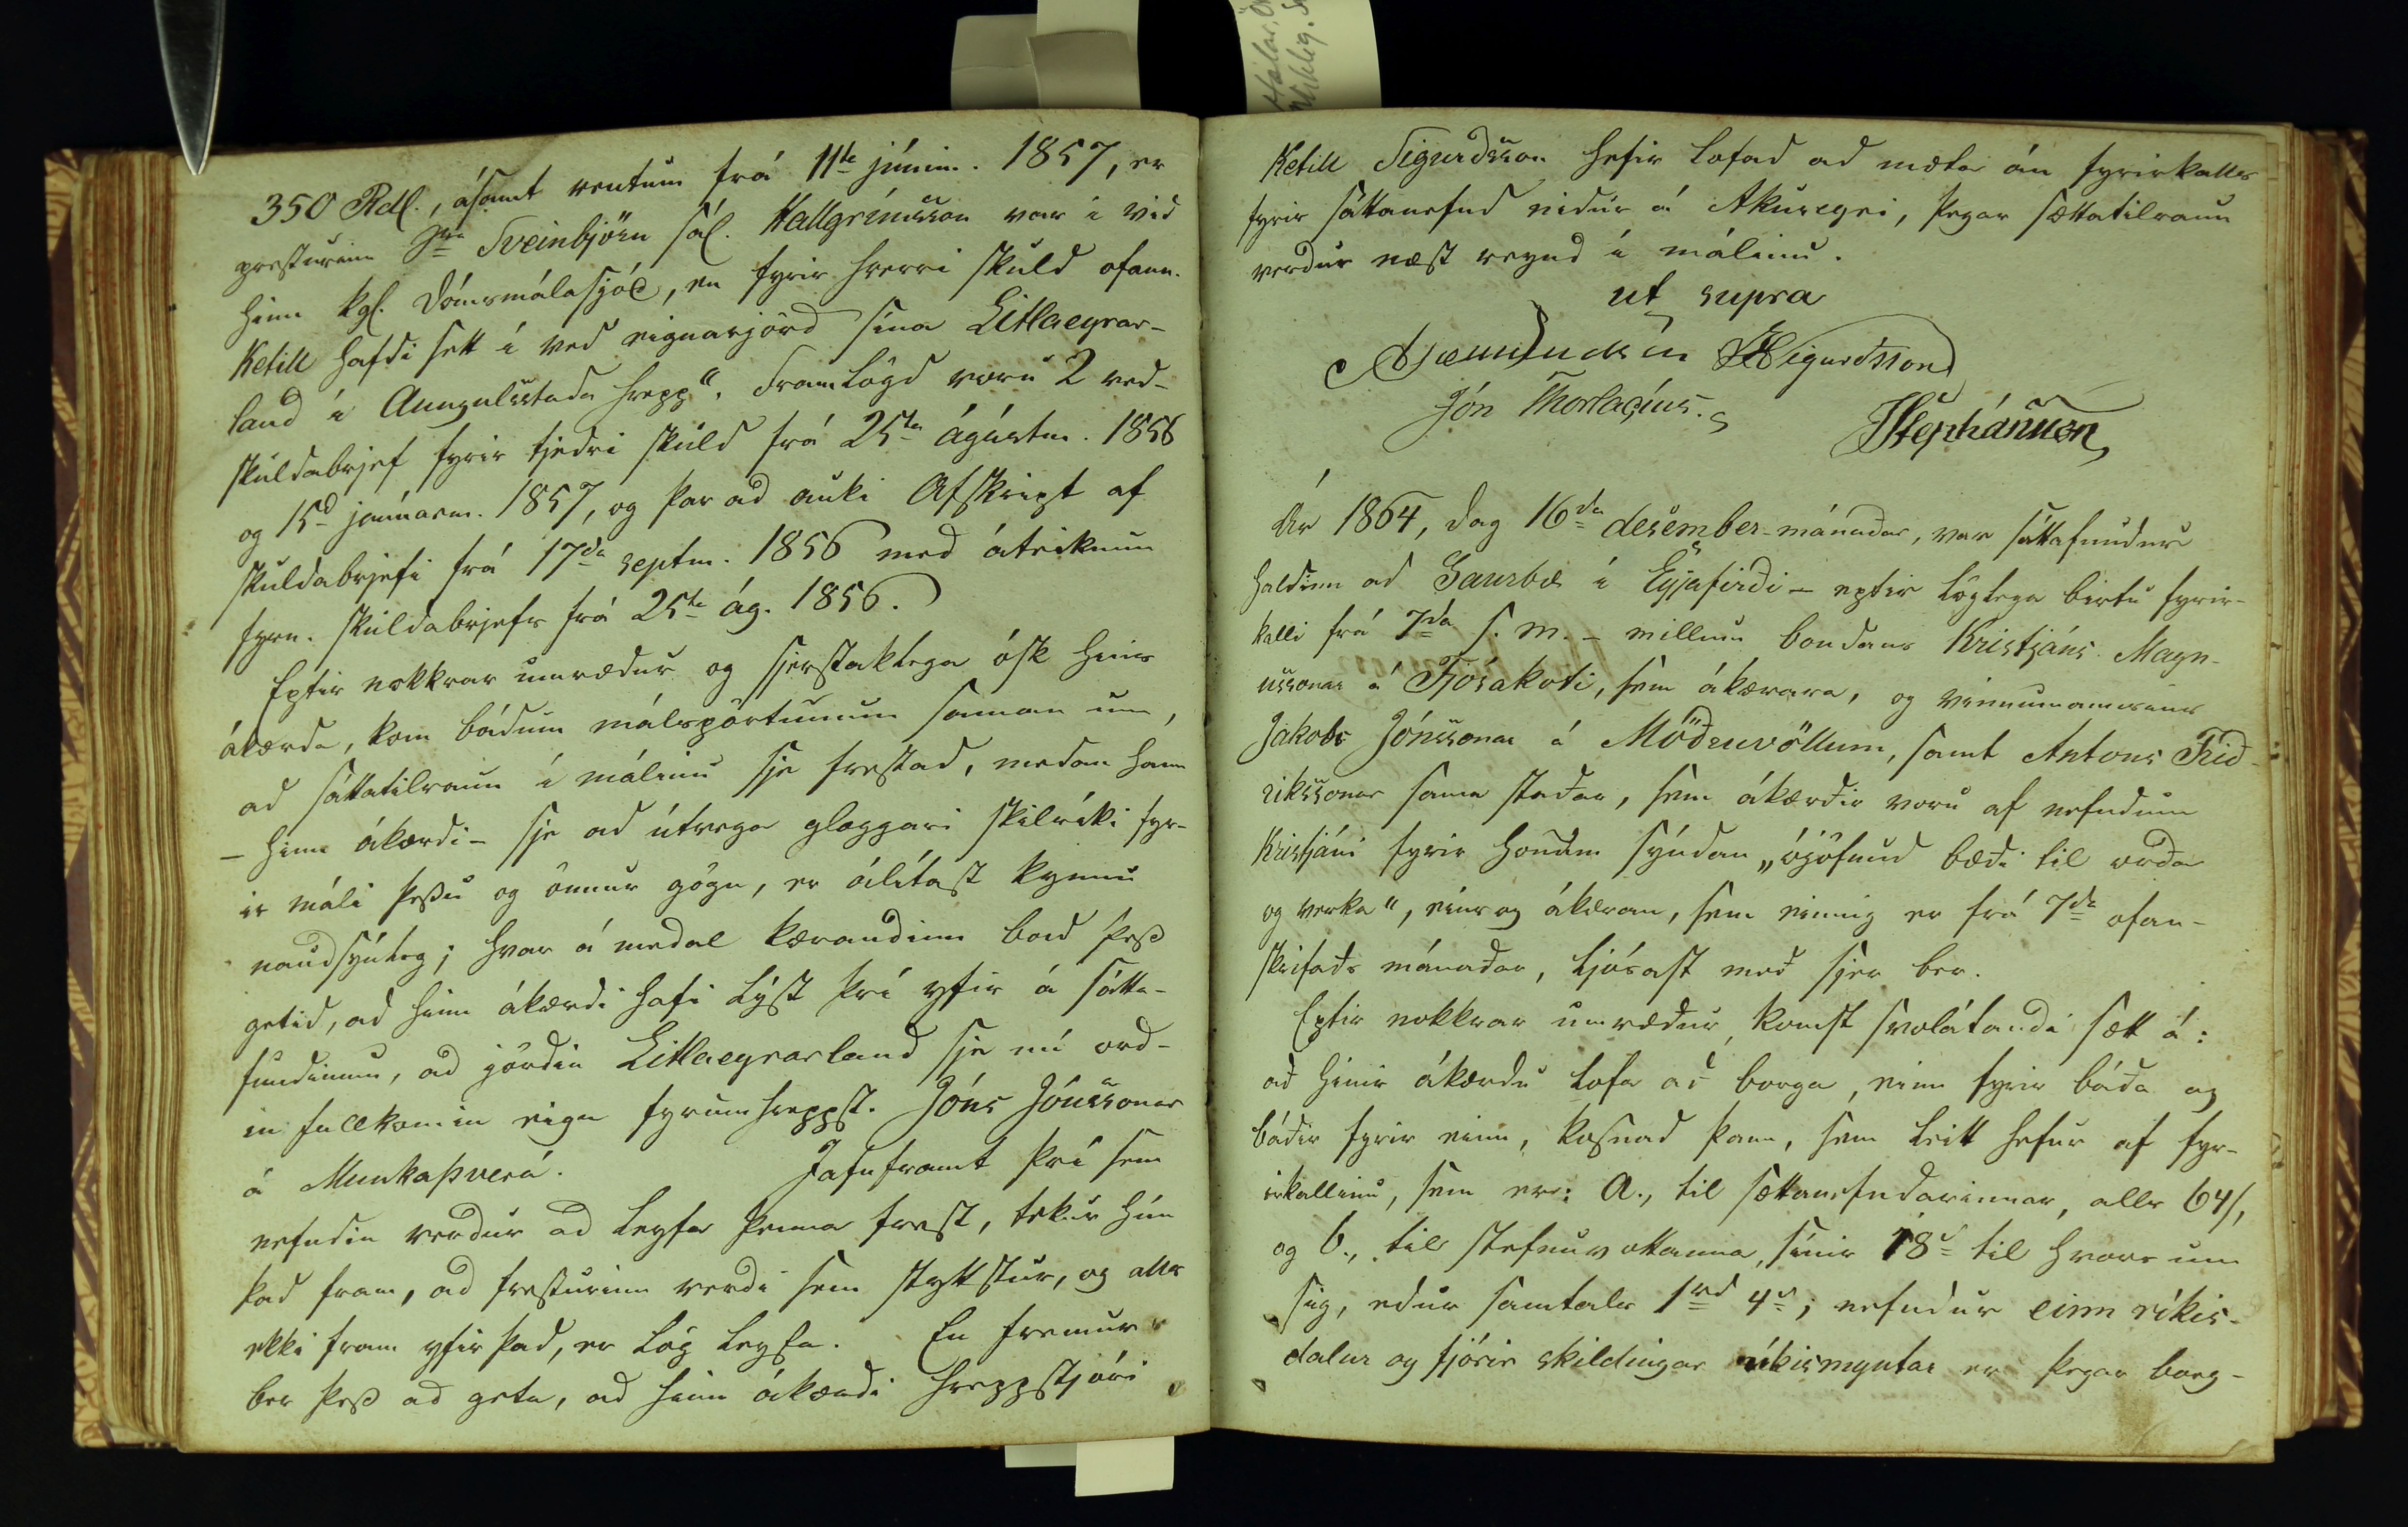 350 Rdl., ásamt rentum frá 11te júnim. 1857, er
presturinn Sra Sveinbjörn sál. Hallgrímsson var í við
hinn kgl. dómsmálasjóð, en fyrir hverri skuld ofann.
Ketill hafði sett í veð eignarjörð sína Litlaeyrar-
land í Aungulsstaða hrepp". Framlögð voru 2 veð-
skuldabrjef fyrir tjeðri skuld frá 25ta ágústm. 1856
og 15d janúarm. 1857, og þar að auki Afskript af
skuldabrjefi frá 17da septm. 1856 með áteiknun
fyrn. skuldabrjefs frá 25ta ág. 1856.
Eptir nokkrar umræður og sjerstaklega ósk hins
ákærða, kom báðum málspörtunum saman um,
að sáttatilraun í málinu sje frestað, meðan hann
- hinn ákærði - sje að útvega glöggari skilríki fyr-
ir máli þessu og önnur gögn, er álítast kynnu
nauðsynleg; hvar á meðal kærandinn bað þess
getið, að hinn ákærði hafi lýst því yfir á sátta-
fundinum, að jörðin Litlaeyrarland sje nú orð-
in fullkomin eign fyrum hreppst. Jóns Jónssonar
á Munkaþverá. Jafnframt því sem
nefndin verður að leyfa þenna frest, tekur hún
það fram, að fresturinn verði sem styttstur, og alls
ekki fram yfir það, er lög leyfa. En fremur
ber þess að geta, að hinn ákærði hreppstjóri
Ketill Sigurðsson hefir lofað að mæta án fyrirkalls
fyrir sáttanefnd niður á Akureyri, þegar sættatilraun
verður næst reynd í málinu.
ut supra
Sigurðsson
Jón Thorlacíus.
JStephánsson
Ár 1864, dag 16da desember-mánaðar, var sáttafundur
haldinn að Saurbæ í Eyjafirði - eptir löglega birtu fyrir-
kalli frá 7da s. m. - millum bóndans Kristjáns Magn-
ússonar á Fjósakoti, sem ákærara, og vinnumannsins
Jakobs Jónssonar á Möðruvöllum, samt Antons Frið-
rikssonar sama staðar, sem ákærðir voru af nefndum
Kristjáni fyrir honum sýndan „ójöfnuð bæði til orða
og verka", eins og ákæran, sem einnig er frá 7da ofan-
skrifaðs mánaðar, ljósast með sjer ber.
Eptir nokkrar umræður, komst svolátandi sætt á:
að hinir ákærðu lofa að borga, einn fyrir báða og
báðir fyrir einn, kosnað þann, sem leitt hefur af fyr-
irkallinu, sem er: a., til sættanefndarinnar, alls 64s,
og b., til stefnuvottanna, sínir 18s til hvors um
sig, eður samtals 1rd 4s; nefndur einn ríkis-
dalur og fjórir skildingar ríkismyntar er þegar borg-